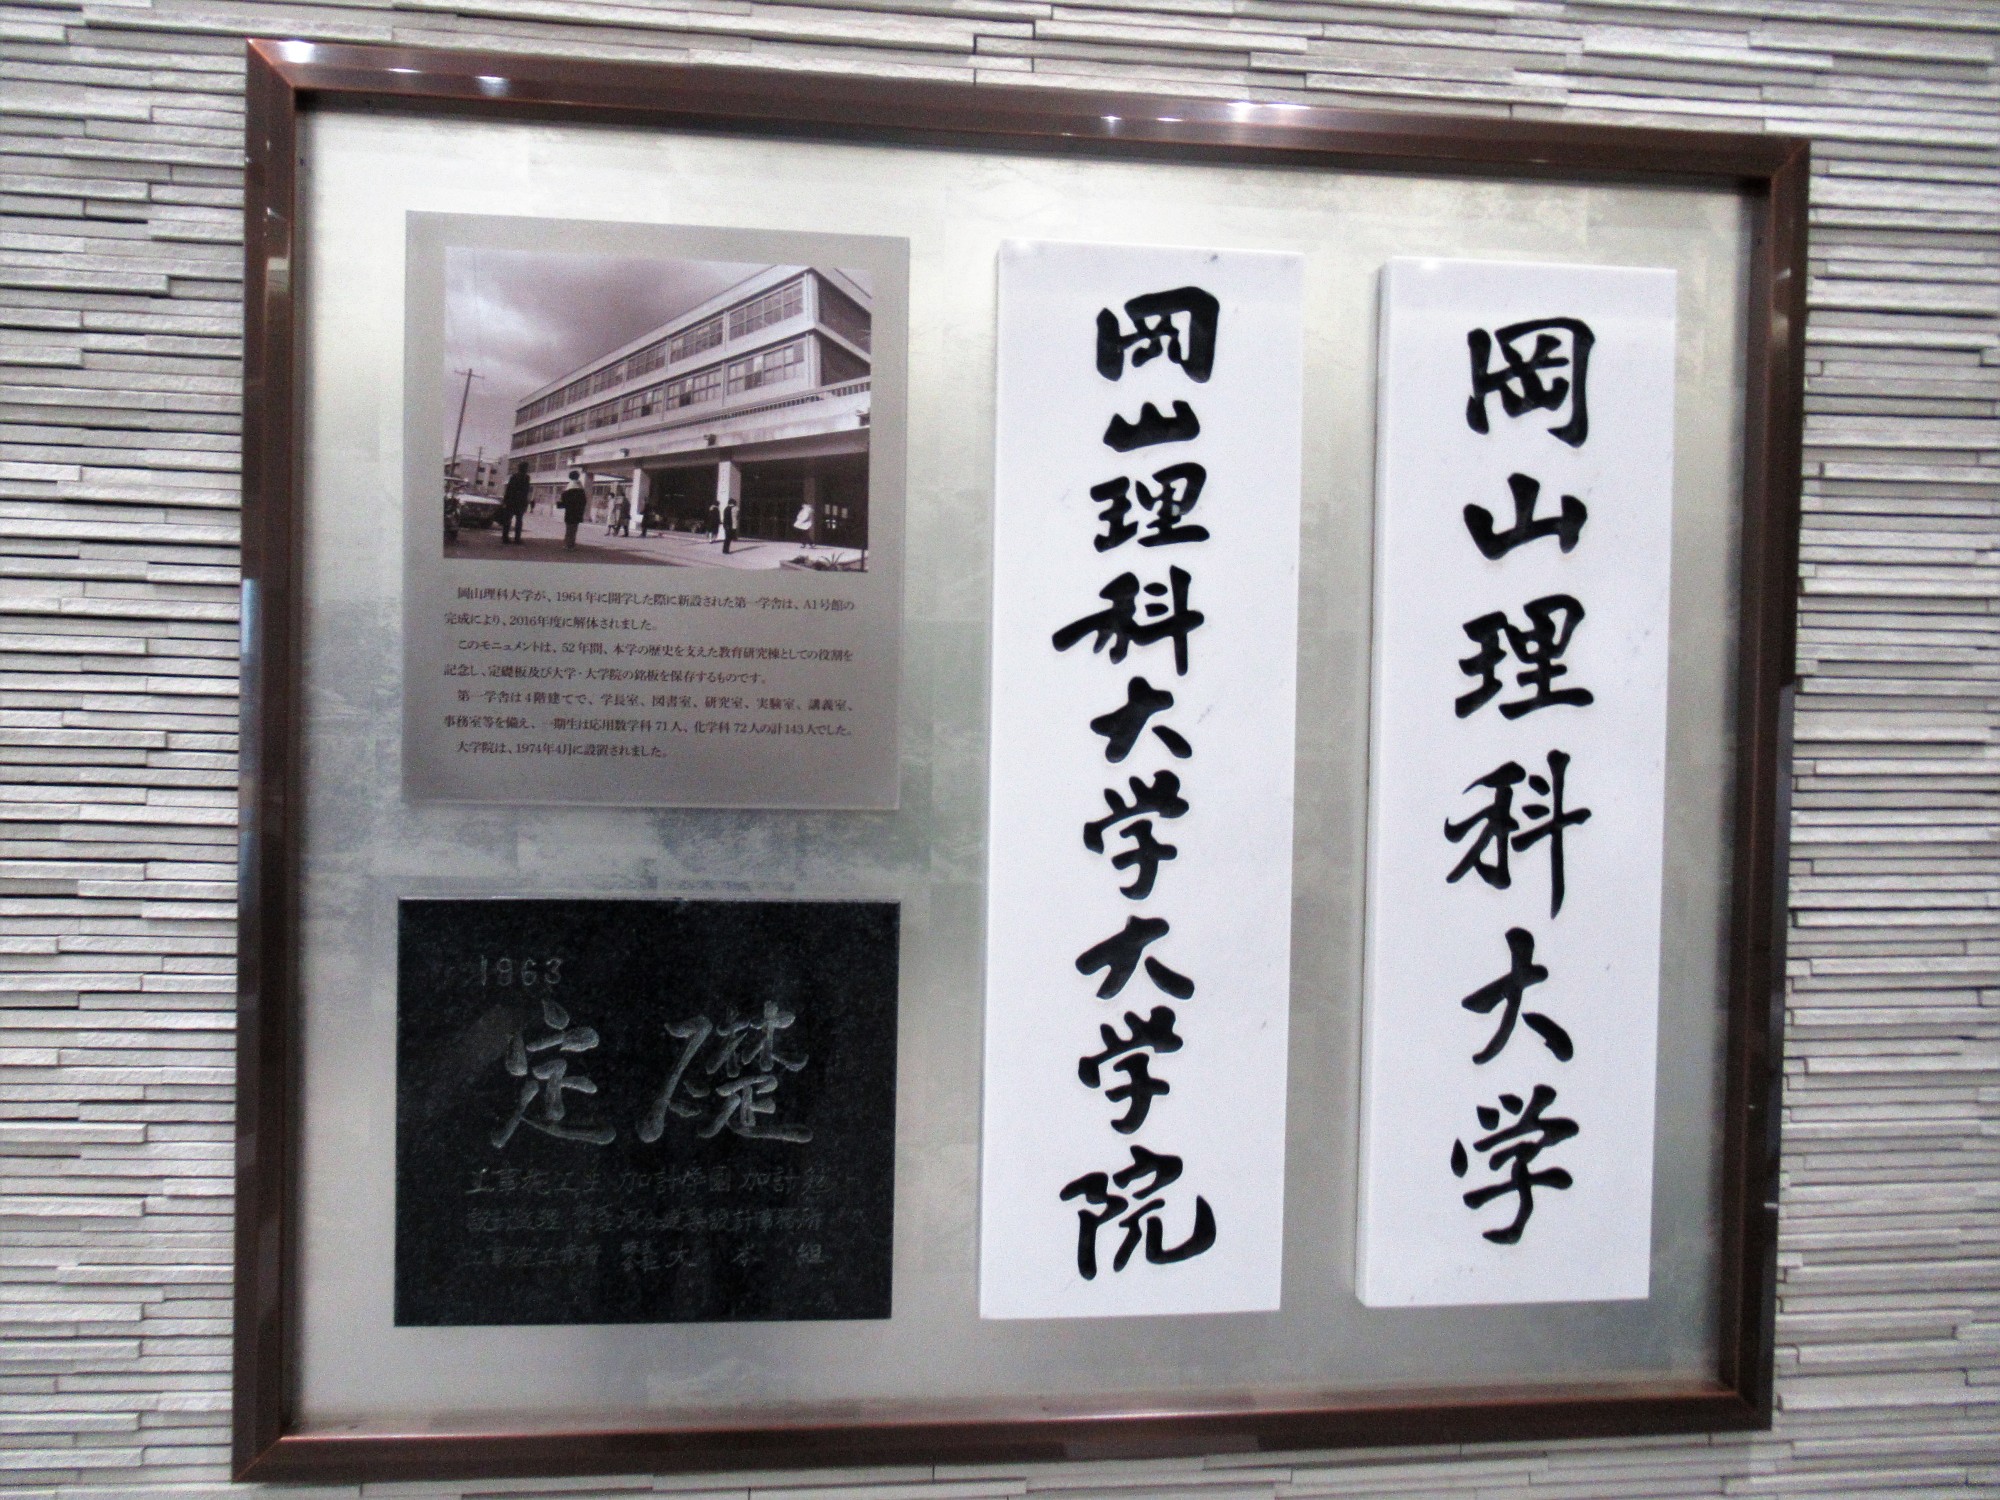 岡山理科大学
岡山理科大学大学院
岡山理科大学が、1964年に開学した際に新設された第一学舎は、A1号館の
完成により、2016年度に解体されました。
このモニュメントは、52年間、本学の歴史を支えた教育研究棟としての役割を
記念し、定礎板及び大学・大学院の銘板を保存するものです。
第一学舎は4階建てで、学長室、図書室、研究室、実験室、講義室、
事務室等を備え、一期生は応用数学科71人、化学科72人の計143人でした。
大学院は、1974年4月に設置されました。
1963
定礎
工事施工主 加計学園 加計勉
設計監理 河合建築設計事務所
工事施工業者 大本組